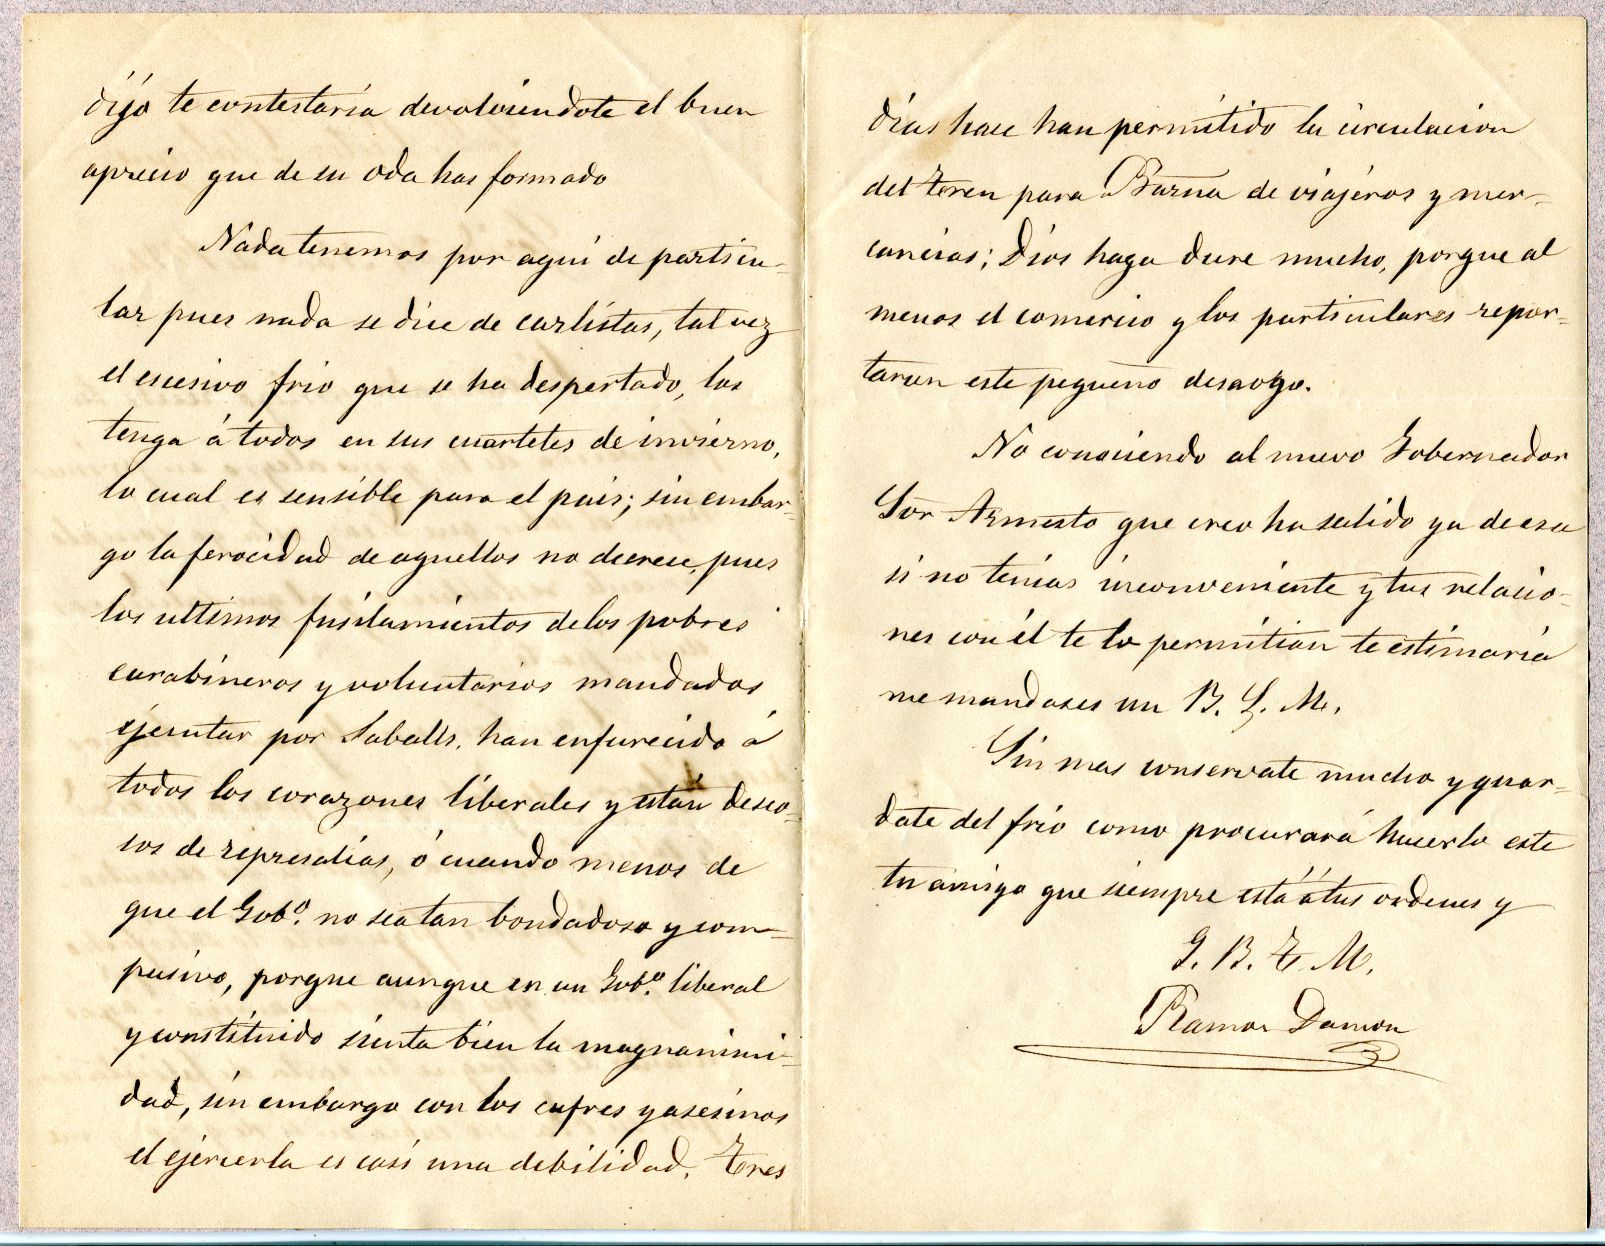 dijo te contestaria devolviendote el buen
aprecio que de su oda has formado
Nada tenemos por aqui de particu-
lar pues nada se dice de carlistas, tal vez
el escesivo frio que se ha despertado, los
tenga á todos en sus cuarteles de invierno,
lo cual es sensible para el pais; sin embar-
go la ferocidad de aquellos no decrece, pues
los ultimos fusilamientos de los pobres
carabineros y voluntarios mandados
ejecutar por Saballs, han enfurecido á
todos los corazones liberales y están deseo-
sos de represalias, ó cuando menos de
que el Gobº. no sea tan bondadoso y com-
pasivo, porque aunque en un Gobº. liberal
y constituido sienta bien la magnanimi-
dad, sin embargo con los cafres y asesinos
el ejercerla es casi una debilidad. Tres
dias hace han permitido la circulacion
del tren para Barna de viajeros y mer-
cancias; Dios haga dure mucho, porque al
menos el comercio y los particulares repor-
taran este pequeño desaogo.
No conociendo al nuevo Gobernador
Sor Armesto que creo ha salido ya de esa
si no tenias inconveniente y tus relacio-
nes con él te lo permitian te estimaria
me mandases un B. L. M.
Sin mas conservate mucho y guar-
date del frio como procurará hacerlo este
tu amigo que siempre está á tus ordenes y
G. B. T. M.
Ramon Damon